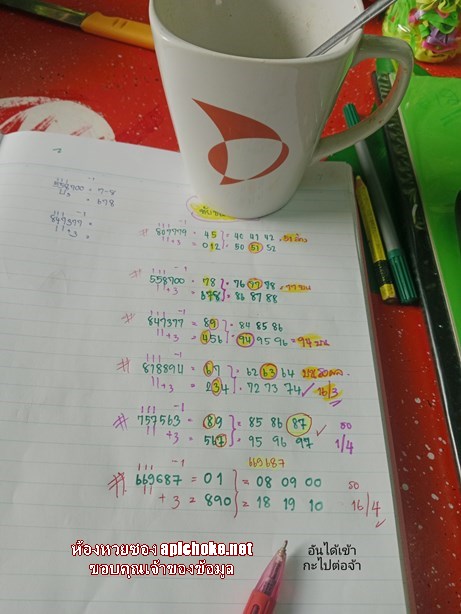 558700 = 7-8
= 678
847377 -1 =
11+3 =
# 807779 = 45 = 40 41 42
11+3 = 012 50 51 52
558700 -1 = 78 = 76 77 78 = 77 บน
11+3 = 678 = 86 87 88
# 847377 -1 = 89 = 84 85 86
11+3 = 456 = 94 95 96 = 94 บน
# 878894 -1 = 67 = 62 63 64
11+3 = 234 = 72 73 74 ✓ 16/3
# 757563 -1 = 89 = 85 86 87 ✓ รอ
11+3 = 567 = 95 96 97 1/4
669687
# 669687 -1 = 01 = 08 09 00 รอ
11+3 = 890 = 18 19 10 16/4
ห้องหวยซอง apichoke.net
ขอบคุณเจ้าของข้อมูล
อันได้เข้า
กะไปต่อจ้า